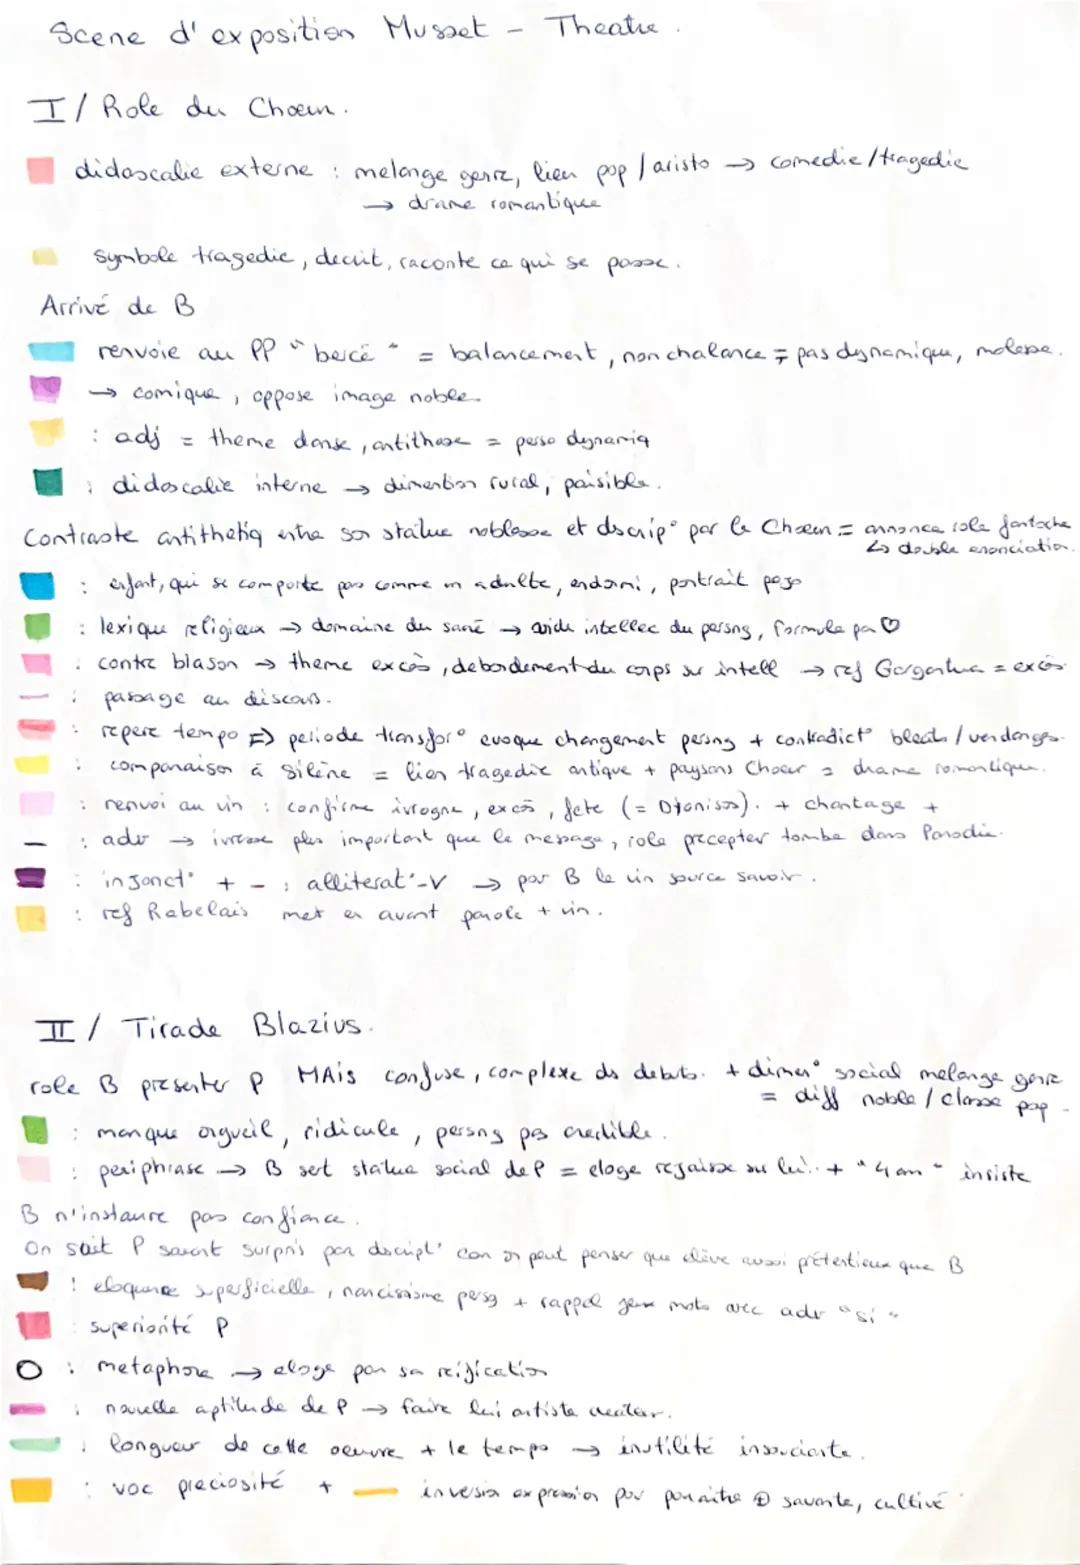 Scene d'exposition Musset - Theatre.
I/ Role du Choeur.
didascalie externe : melange genre, lien pop / aristo → comedie/tragedie
→ drame romantique
symbole tragedie, decrit, raconte ce qui se passe.
Arrivé de B
renvoie au PP "bercé" = balancement, nonchalance = pas dynamique, molesse.
→ comique, oppose image noble.
: adj = theme danse, antithese = perso dynamiq
: didascalie interne → dimention rural, paisible.
Contraste antithetiq entre son statue noblesse et descrip° par le Choeur = annonce role fantoche
↳ double enonciation.
: enfant, qui se comporte pas comme un adulte, endormi, portrait pejo
: lexique religieux → domaine du sacré → vide intellec du persng, formule par ♡
: contre blason → theme excès, debordement du corps sur intell → ref Gargantua = excès
: passage au discours.
: repere tempo => periode transfor° evoque changement persng + contradict° bleats / vendanges.
: comparaison à Silène = lien tragedie antique + paysans Choeur = drame romantique.
: renvoi au vin : confirme ivrogne, excès, fete (= Dionisos). + chantage +
: adv → ivresse plus important que le message, role precepter tombe dans Parodie.
: injonct° + - : alliterat°-V → par B le vin source savoir.
: ref Rabelais met en avant parole + vin.
II/ Tirade Blazius.
role B presenter P MAiS confuse, complexe ds debuts. + dimen° social melange genre
= diff noble / classe pop.
: manque orgueil, ridicule, persng pas credible.
: periphrase → B sert statue social de P = eloge rejaisse sur lui. + "4 an" insiste
B n'instaure pas confiance.
On sait P savant surpris par discript° car on peut penser que élève aussi prétentieux que B
: eloquence superficielle, narcissisme persg + rappel jeux mots avec adv "si"
: superiorité P
: metaphore → eloge par sa reification
: nouvelle aptitude de P → faire lui artiste createur.
: longueur de cette oeuvre + le temps → inutilité insouciante.
: voc preciosité + inversion expression pour paraitre ⊕ savante, cultivé